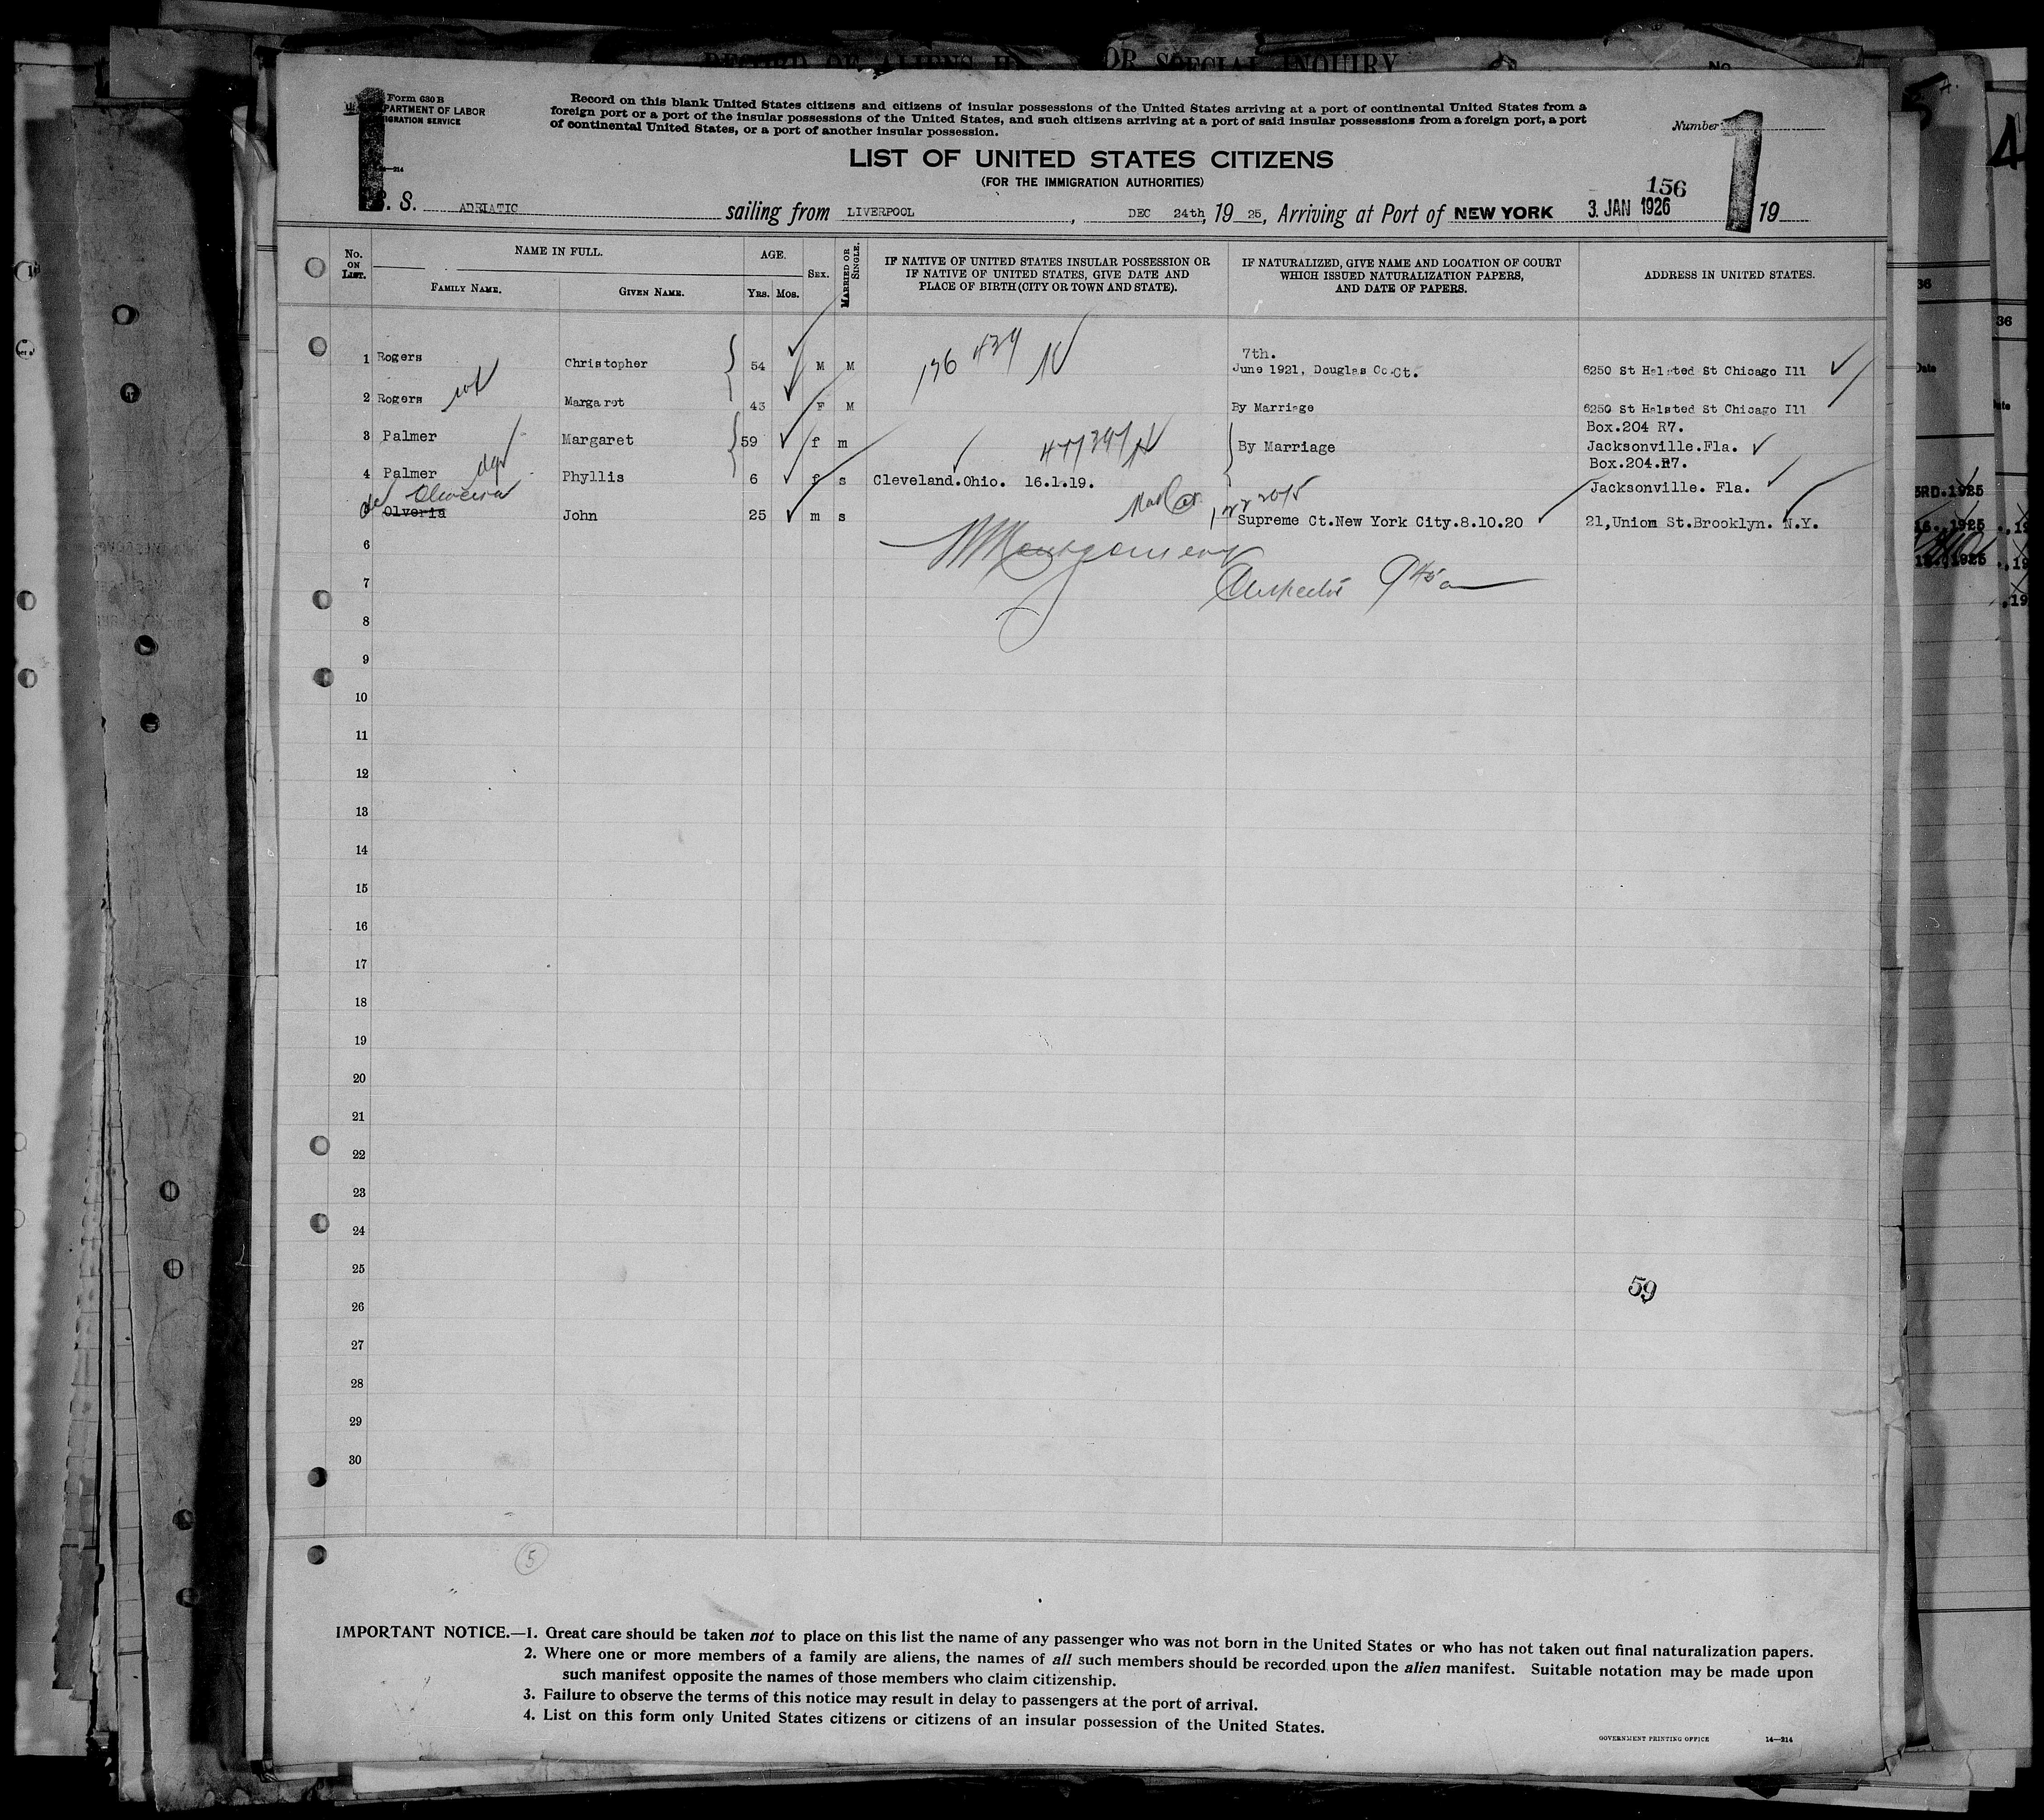 RECORD OF ALIENS H OR SPECIAL INQUIRY
No.
Form 630 B
PARTMENT OF LABOR
MIGRATION SERVICE
14—214
Record on this blank United States citizens and citizens of insular possessions of the United States arriving at a port of continental United States from a
foreign port or a port of the insular possessions of the United States, and such citizens arriving at a port of said insular possessions from a foreign port, a port
of continental United States, or a port of another insular possession.
Number 1
LIST OF UNITED STATES CITIZENS
(FOR THE IMMIGRATION AUTHORITIES)
156
S. S. ADRIATIC sailing from LIVERPOOL, DEC 24th, 19 25, Arriving at Port of NEW YORK 3. JAN 1926 19
No. ON LIST.
NAME IN FULL.
FAMILY NAME.
GIVEN NAME.
AGE.
YRS. MOS.
SEX.
MARRIED OR SINGLE.
IF NATIVE OF UNITED STATES INSULAR POSSESSION OR
IF NATIVE OF UNITED STATES, GIVE DATE AND
PLACE OF BIRTH (CITY OR TOWN AND STATE).
IF NATURALIZED, GIVE NAME AND LOCATION OF COURT
WHICH ISSUED NATURALIZATION PAPERS,
AND DATE OF PAPERS.
ADDRESS IN UNITED STATES.
7th.
1 Rogers Christopher 54 M M 136 439 N June 1921, Douglas Co.Ct. 6250 St Halsted St Chicago Ill
2 Rogers wf Margaret 43 F M By Marriage 6250 St Halsted St Chicago Ill
Box.204 R7.
3 Palmer Margaret 59 f m By Marriage Jacksonville.Fla.
Box.204.R7.
4 Palmer Phyllis 6 f s Cleveland.Ohio. 16.1.19. Jacksonville. Fla.
de Oliveira
Olveria John 25 m s Supreme Ct.New York City.8.10.20 21,Union St.Brooklyn. N.Y.
6
Montgomery
7
Inspector
8
9
10
11
12
13
14
15
16
17
18
19
20
21
22
23
24
25
59
26
27
28
29
30
5
IMPORTANT NOTICE.—1. Great care should be taken not to place on this list the name of any passenger who was not born in the United States or who has not taken out final naturalization papers.
2. Where one or more members of a family are aliens, the names of all such members should be recorded upon the alien manifest. Suitable notation may be made upon
such manifest opposite the names of those members who claim citizenship.
3. Failure to observe the terms of this notice may result in delay to passengers at the port of arrival.
4. List on this form only United States citizens or citizens of an insular possession of the United States.
GOVERNMENT PRINTING OFFICE 14—214